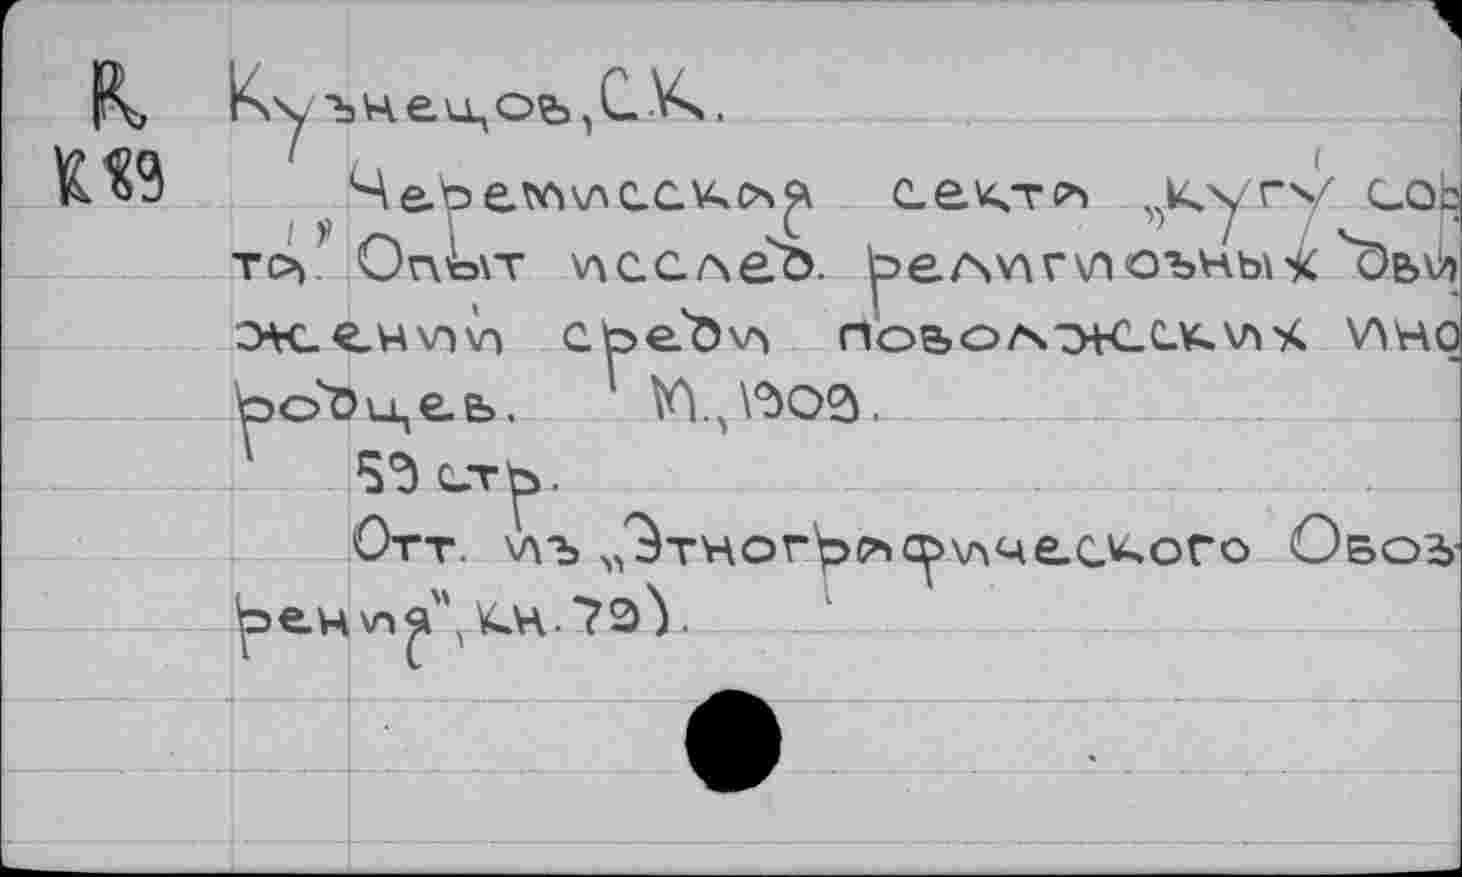 К Кузнецов, С.К.
К89 Черемисская секта „кугу сор
та”. Опыт исслед. религиозных дви
жении среди поволжских ино
родцев. М., 1909.
59 стр.
Отт. из „Этнографического Обоз-
рения", кн. 79).